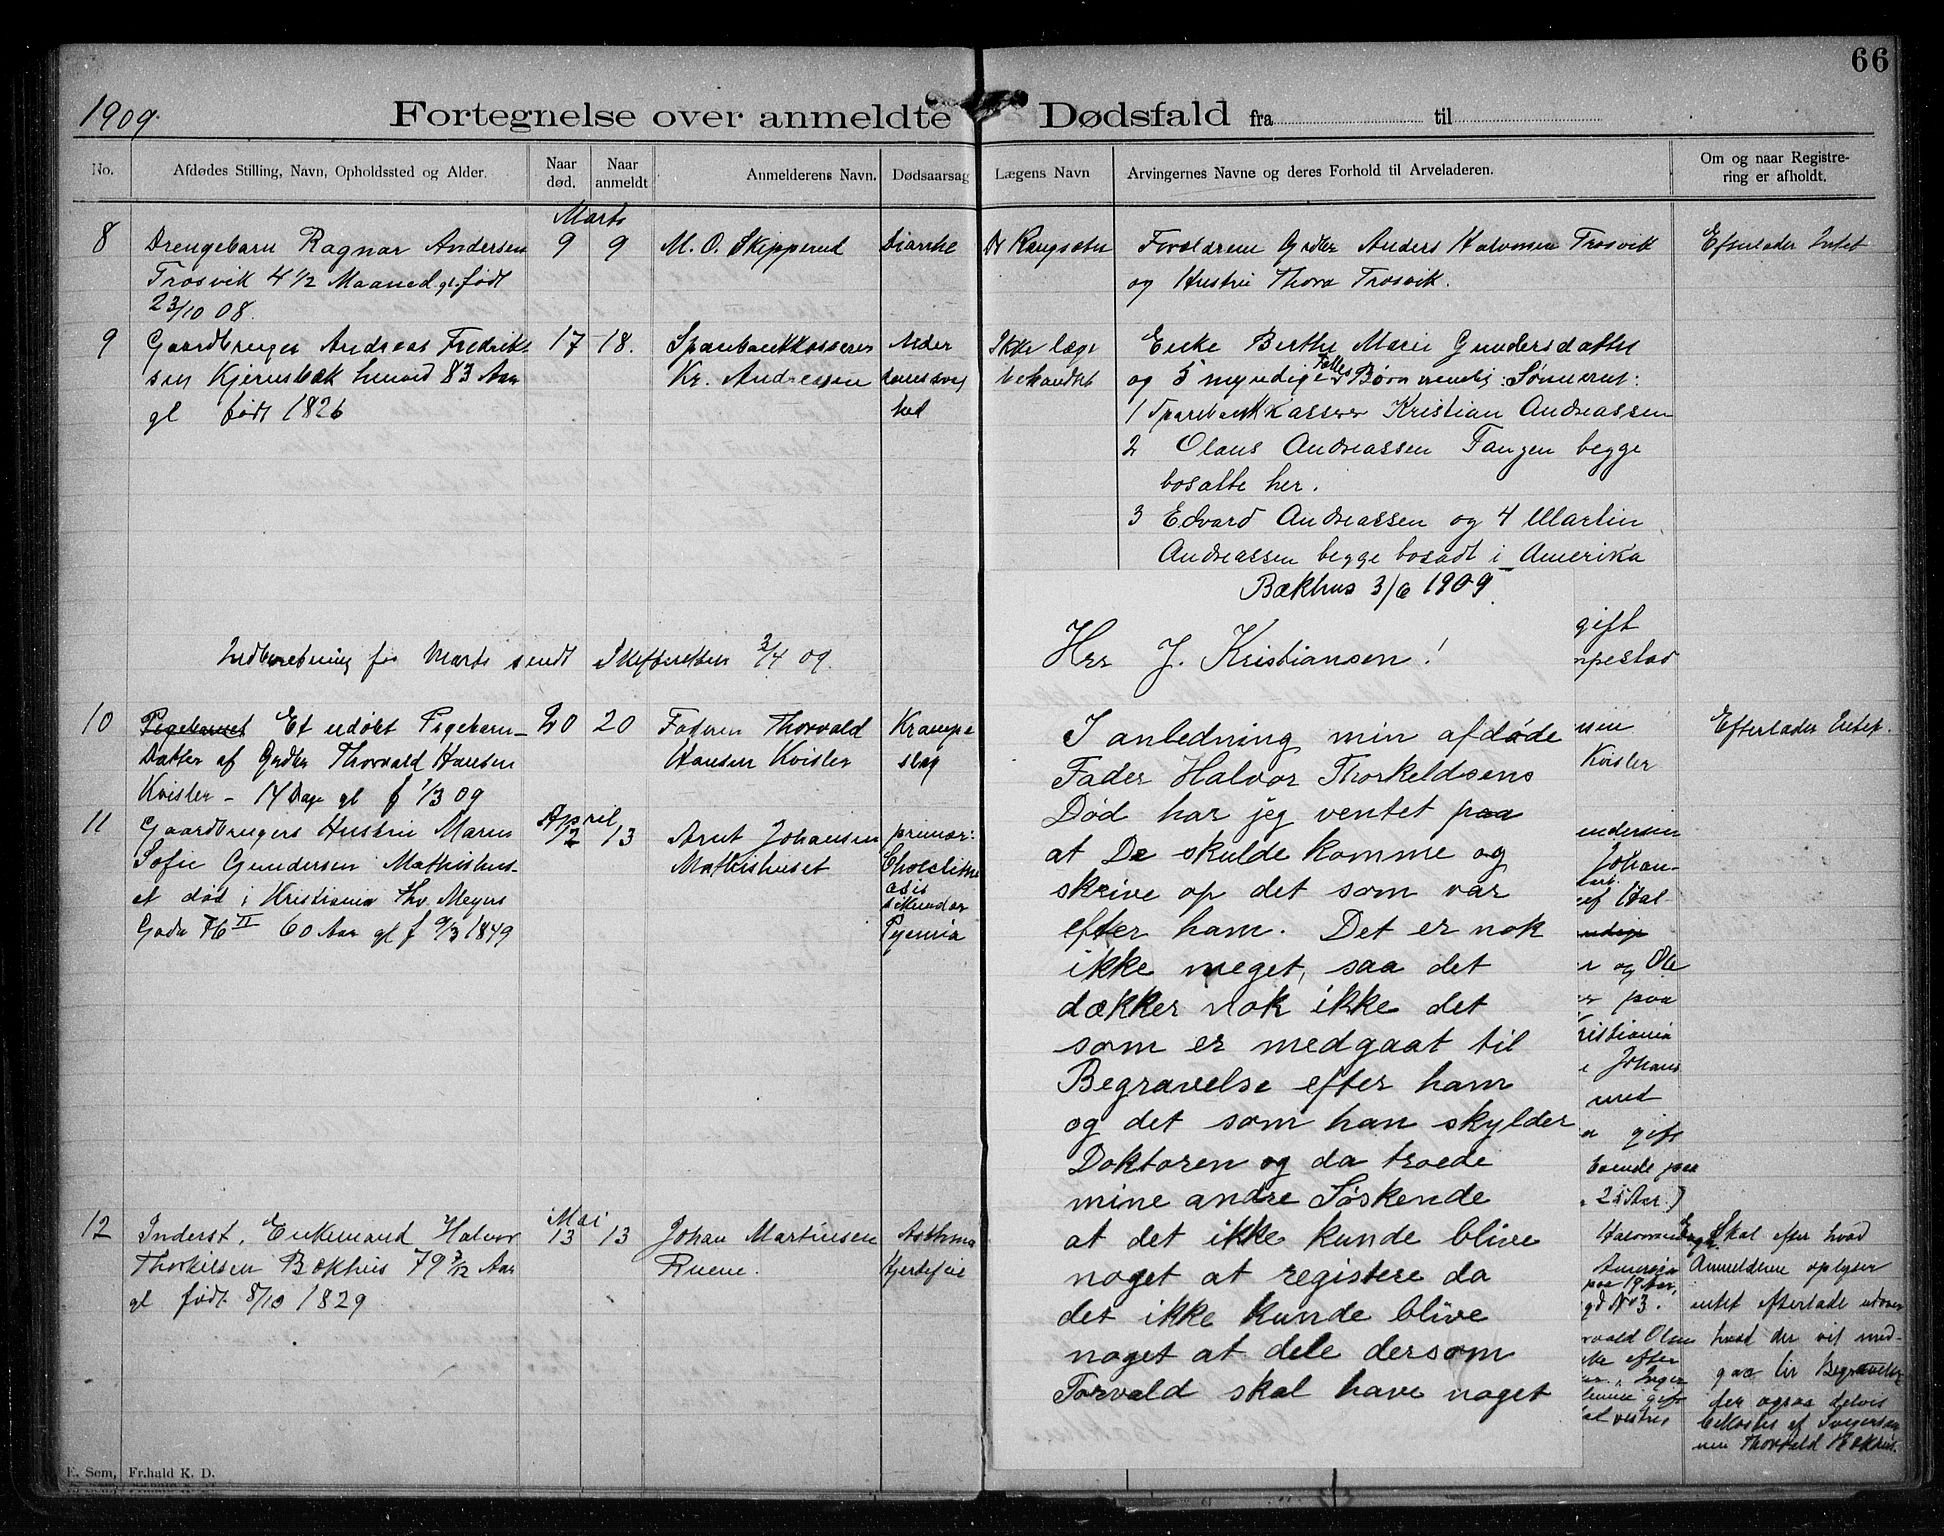 66
1909.
Fortegnelse over anmeldte Dødsfald fra til
No.
Afdødes Stilling, Navn, Opholdssted og Alder.
Naar død.
Naar anmeldt
Anmelderens Navn.
Dødsaarsag
Lægens Navn
Arvingernes Navne og deres Forhold til Arveladeren.
Om og naar Registre-
ring er afholdt.
Marts
8 Drengebarn Ragnar Andersen 9 9 M. O. Skipperud Diarrhe
Trosvik 4 1/2 Maaned gl. født
23/10 08.
Forældrene Grdbr Anders Halvorsen Trosvik
og Hustru Thora Trosvik.
Efterlader Intet
9 Gaardbruger Andreas Fredrik- 17 18. Sparebankkasserer Alder
sen Kjernsbæk henved 83 Aar Kr. Andreassen
gl født 1826
Ikke læge
behandlet
Enke Berthe Marie Gundersdatter
og 5 myndige Fælles Børn nemlig: Sønnerne:
1 Sparebankkasserer Kristian Andreassen
2 Olaus Andreassen Tangen begge
bosatte her.
3 Edvard Andreassen og 4 Martin
Andreassen begge bosadt i Amerika
Indberetning for Marts sendt Skifteretten 3/4 09.
10 Pigebarnet Et udøbt Pigebarn 20 20 Faderen Thorvald Krampe
Datter af Grdbr Thorvald Hansen Hansen Kvisler slag
Kvisler - 14 Dage gl f 1/3 09
Efterlader Intet.
April
11 Gaardbrugers Hustru Maren 12 13 Arnt Johansen primær:
Sofie Gundersen Mathishus- Mathishuset
et død i Kristiania Thv. Meyers
Gade 76 II 60 Aar gl f 9/3 1849
Pyemia
Mai
12 Inderst, Enkemand Halvor 13 13 Johan Martinsen Asthma
Thorkilsen Bækhus 79 7/12 Aar Ruene. Hjertefeil
gl født 8/10 1829
Bækhus 3/6 1909.
Hrr J. Kristiansen!
I anledning min afdøde
Fader Halvor Thorkeldsens
Død har jeg ventet paa
at De skulde komme og
skrive op det som var
efter ham. Det er nok
ikke meget, saa det
dækker nok ikke det
som er medgaat til
Begravelse efter ham
og det som han skylder
Doktoren og da troede
mine andre Søskende
at det ikke kunde blive
noget at registere da
det ikke kunde blive
noget at dele dersom
Torvald skal have noget
gift
Kvisler
Johan-
og Ole
paa
Johans
med
gift
25 Aar.)
Skal efter hvad
Anmelderne oplyser
intet efterlade udover
hvad der vil med-
gaa til Begravelse
der ogsaa delvis
bekostes af Svigersøn-
nen Thorvald Bækhus.
E. Sem, Fr.hald K. D.